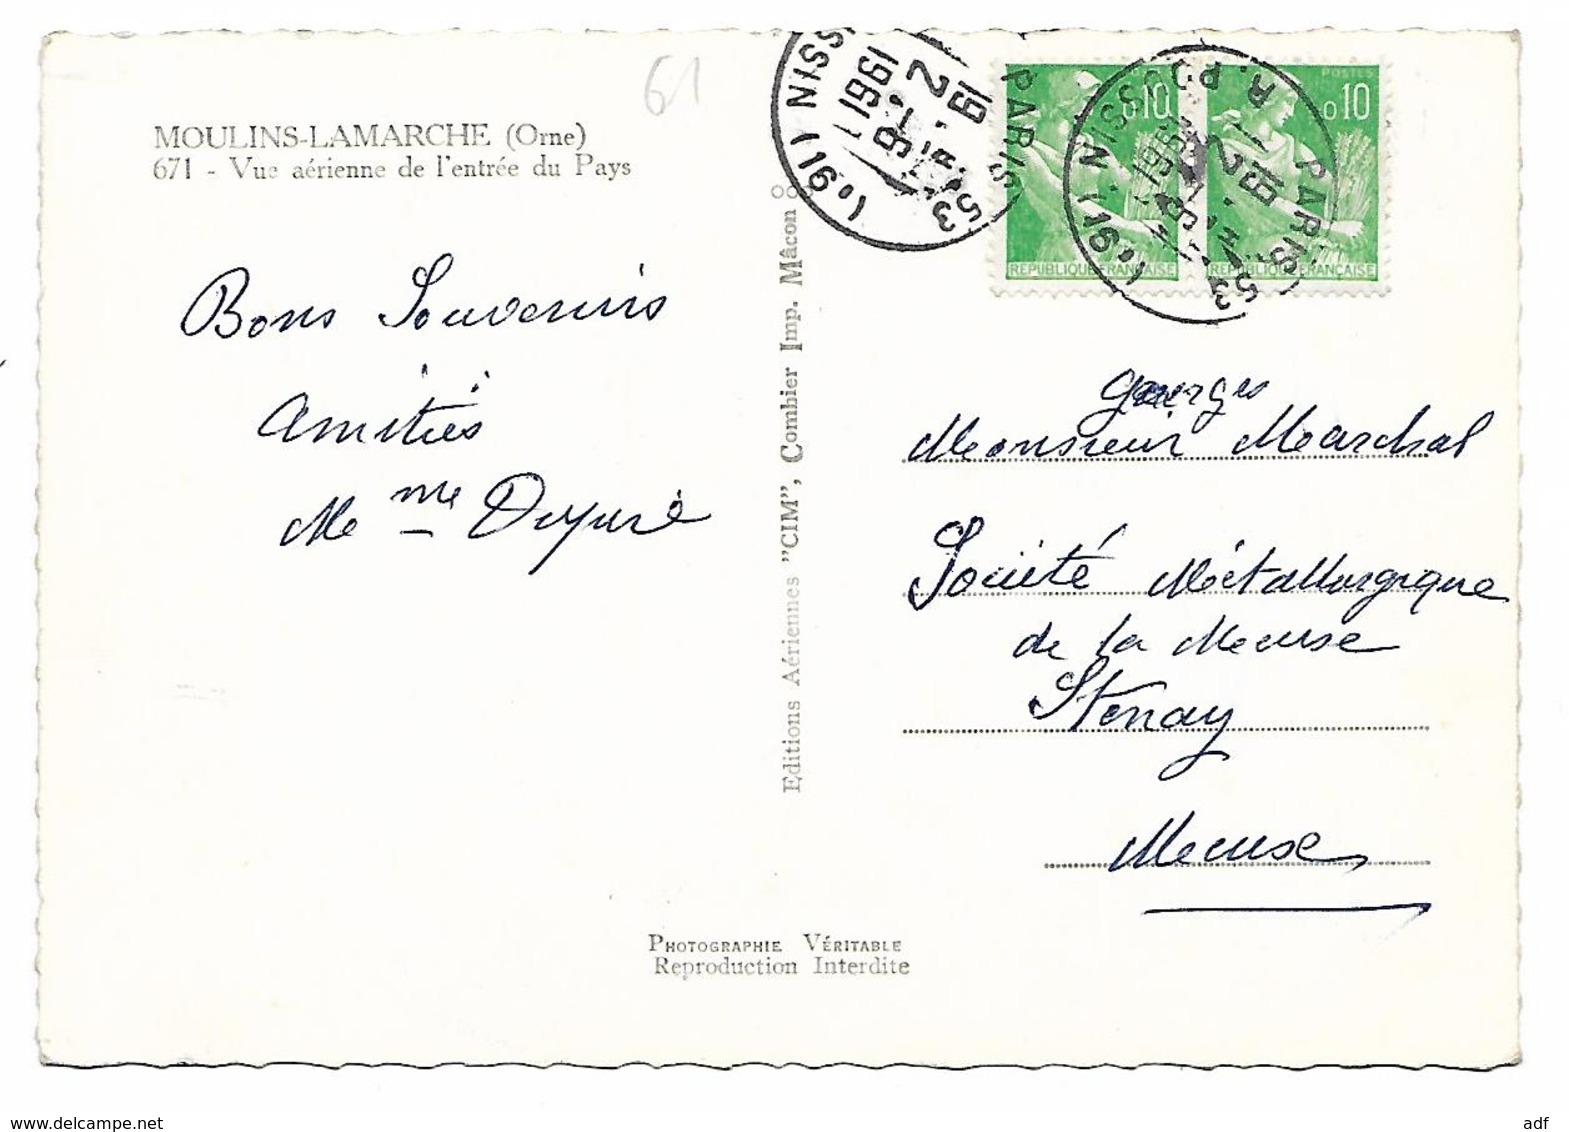 61
MOULINS-LAMARCHE (Orne)
671 - Vue aérienne de l'entrée du Pays
Bons Souvenirs
Amitiés
Mme
Editions Aériennes "CIM", Combier Imp. Mâcon
PARIS 53
19 - 2
1961
(16e)
0,10
RÉPUBLIQUE FRANÇAISE
POSTES
0,10
RÉPUBLIQUE FRANÇAISE
R. POUSSIN (16e)
PARIS 53
1961
Georges
Monsieur Marchal
Société Métallurgique
de la Meuse
Stenay
Meuse
PHOTOGRAPHIE VÉRITABLE
Reproduction Interdite
www.delcampe.net
adf